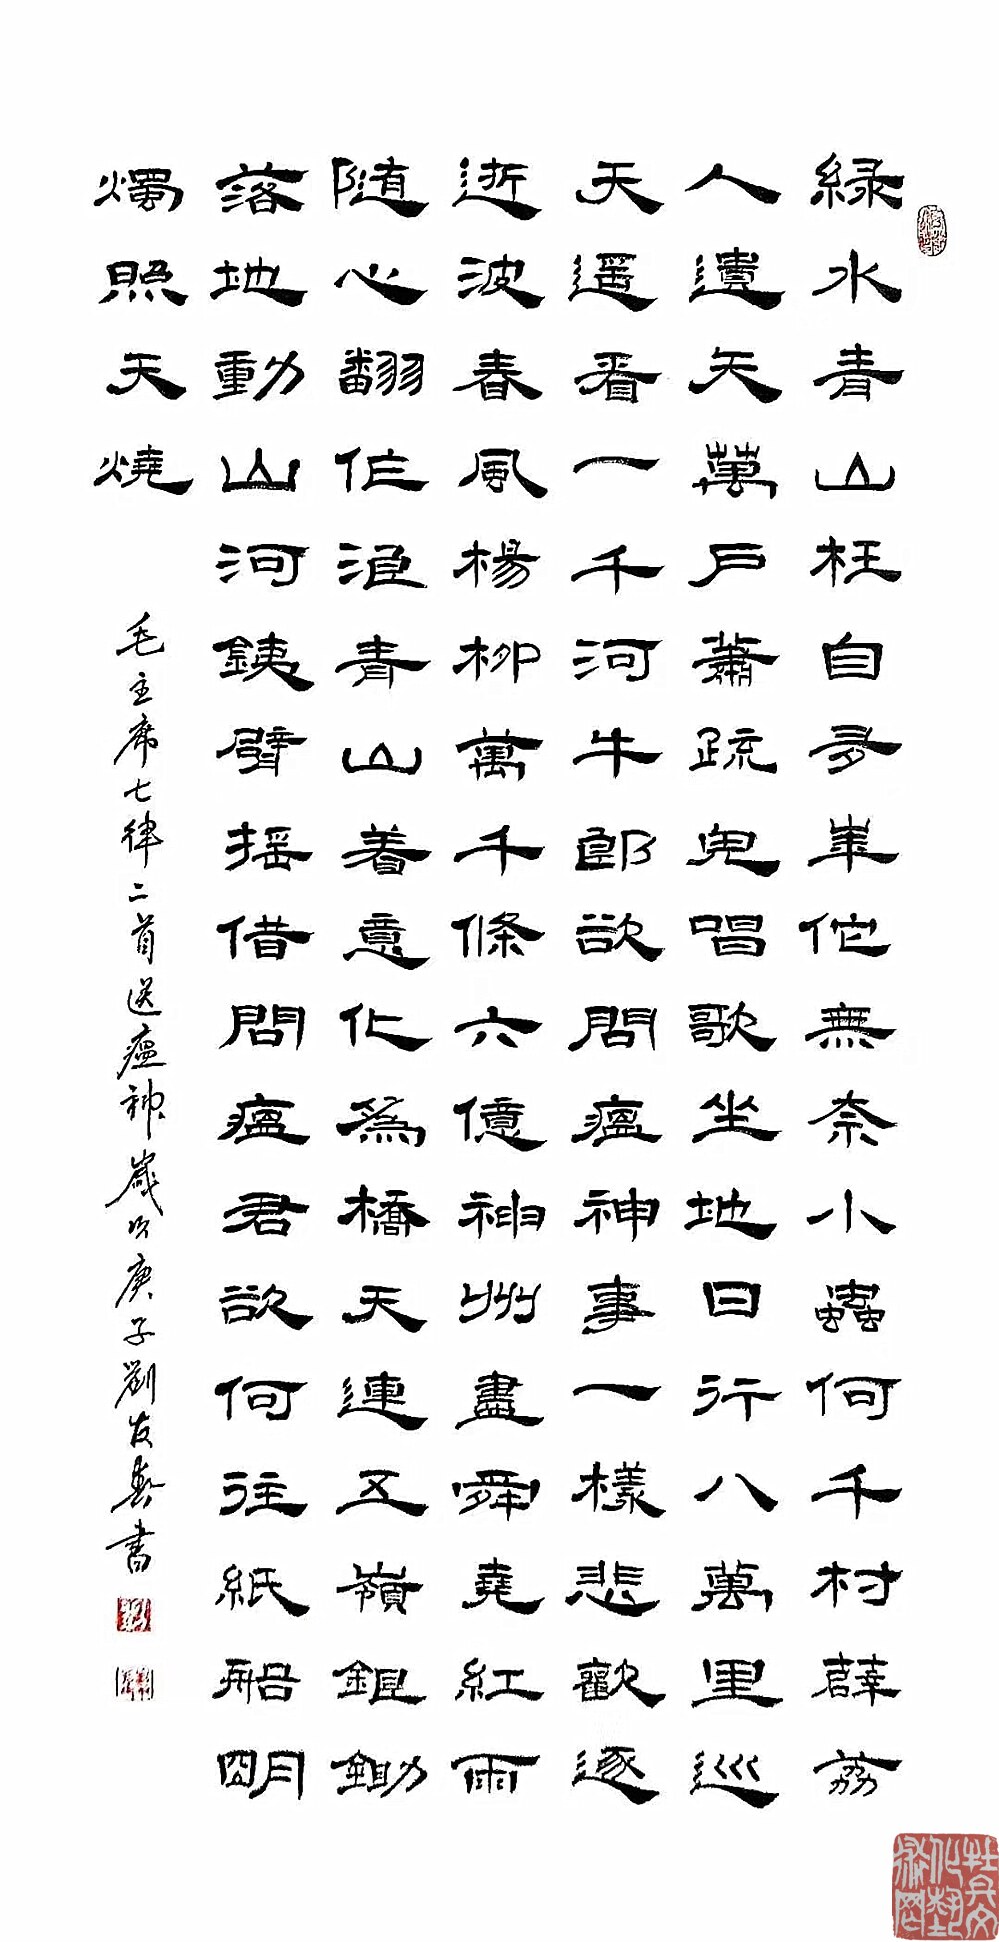 緑水青山枉自多華佗無奈小蟲何千村薜荔
人遺矢萬戶蕭疏鬼唱歌坐地日行八萬里巡
天遥看一千河牛郎欲問瘟神事一樣悲歡逐
逝波春風楊柳萬千條六億神州盡舜堯紅雨
随心翻作浪青山着意化為橋天連五嶺銀鋤
落地動山河銕臂摇借問瘟君欲何往紙船明
燭照天燒
毛主席七律二首送瘟神歲次庚子劉友書
牡丹文化藝術网